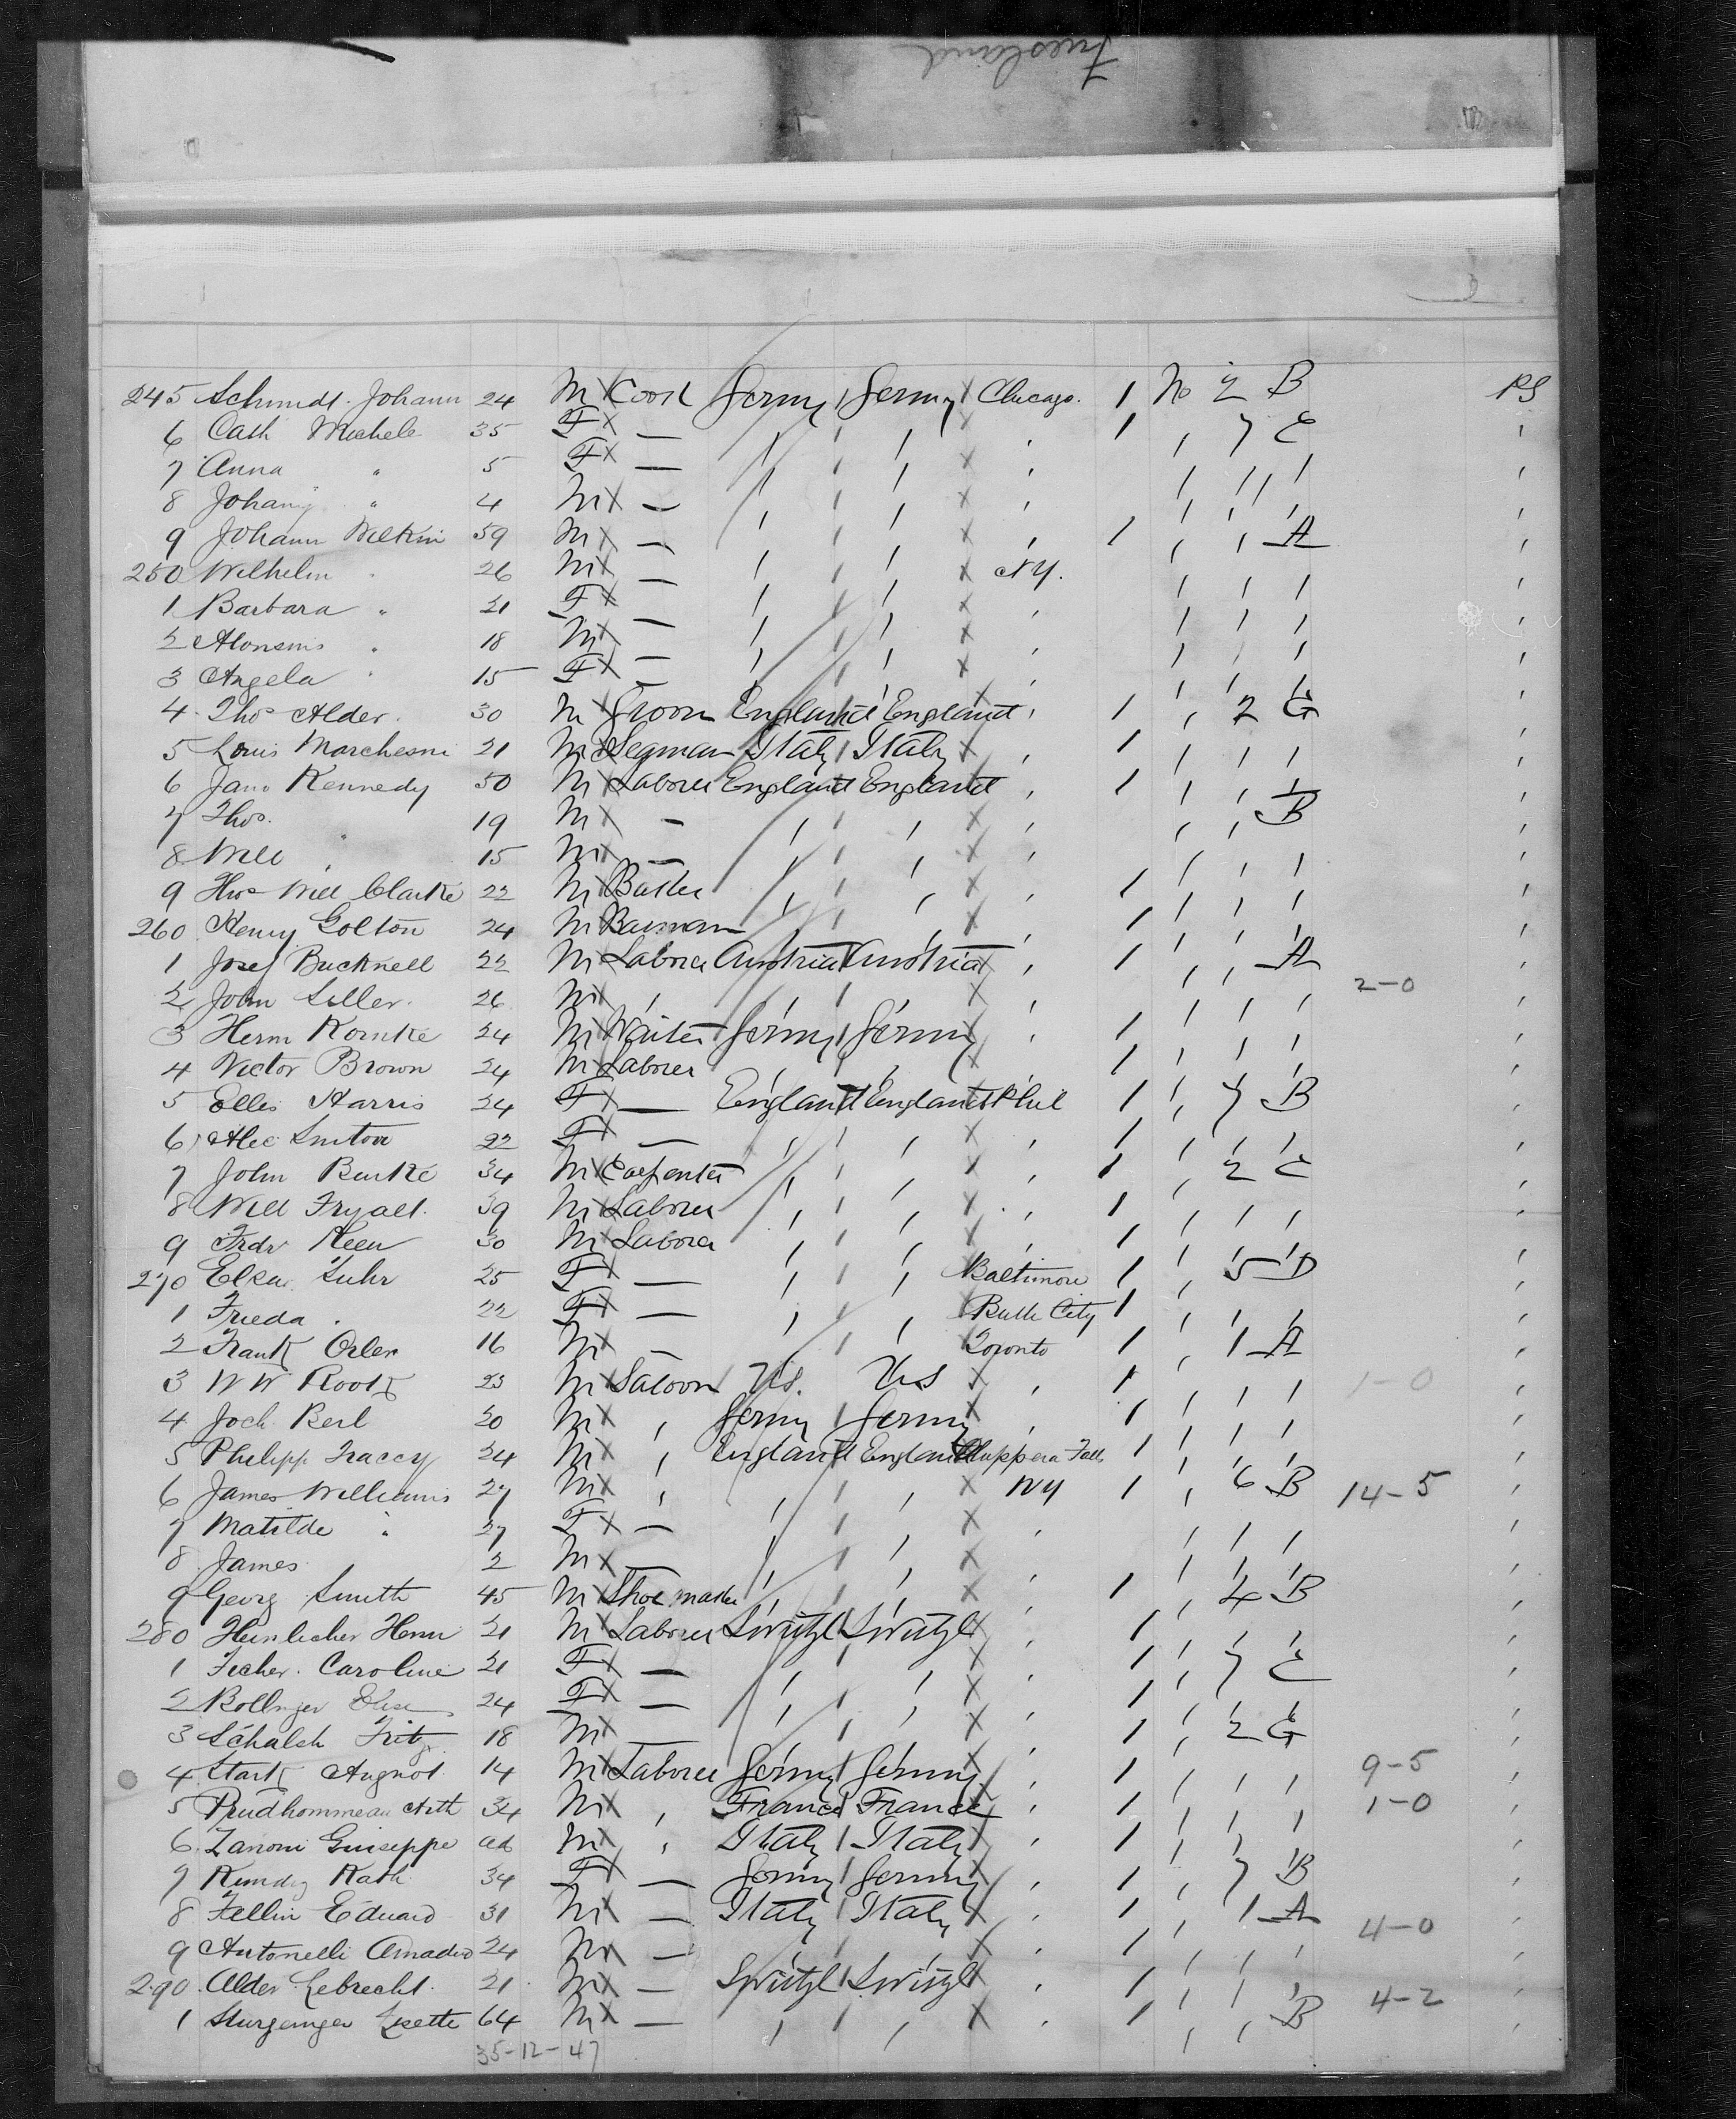 Friesland
245 Schmidt Johann 24 M X Cook Germy Germy X Chicago. 1 No 2 B PS
6 Cath Michele 35 F X — " " X " 1 " 7 C "
7 Anna " 5 F X — " " X " " " " "
8 Johann " 4 M X — " " X " " " " "
9 Johann Welkin 59 M X — " " X " 1 " 1 A "
250 Wilhelm " 26 M X — " " X NY. " " " "
1 Barbara " 21 F X — " " X " " " " "
2 " 18 M X — " " X " " " " "
3 Angela " 15 F X — " " X " " " " "
4 Thos Alder. 30 M X Groom England England " 1 " 2 G "
5 Louis Marchesni 21 M X Seaman Italy Italy X " 1 " " " "
6 Jano Kennedy 50 M X Laborer England England " 1 " " " "
7 Thos. " 19 M X — " " X " " " B "
8 Will " 15 M X — " " X " " " " "
9 Thos Will Clarke 22 M X Butler " " X " 1 " " " "
260 Henry Golton 24 M Barman " " X " 1 " " " "
1 Josef Bucknell 22 M Laborer Austria Austria X " 1 " " A "
2-0
2 John Siller. 26 M X " " " X " " " " "
3 Herm Kornke 24 M X Waiter Germy Germy " 1 " " " "
4 Victor Brown 24 M X Laborer " " X " 1 " " " "
5 Elles Harris 24 F X — England England X Phil 1 " 7 B "
6 Alec Sutton 22 F X — " " X " 1 " " " "
7 John Burke 34 M X Carpenter " " X " 1 " 2 C "
8 Will Fryatt. 39 M X Laborer " " X " 1 " " " "
9 Frdr Keen 30 M X Laborer " " " 1 " " " "
270 Elka Suhr 25 F X — " " X Baltimore 1 " 5 D "
1 Frieda " 22 F X — " " X Butte City 1 " " " "
2 Frank Orler 16 M X — " " Toronto 1 " 1 A "
3 W W Rook 23 M X Saloon U.S. U.S X " 1 " " " 1-0 "
4 Joch Berl 20 M X " Germy Germy X " 1 " " " "
5 Philipp Traccy 24 M X " England England Chippewa Falls 1 " " " "
6 James Williams 27 M X " " " X NY 1 " 6 B 14-5 "
7 Matilde " 27 F X — " " X " " " " "
8 James 2 M X — " " X " " " " "
9 Georg Smith 45 M X Shoemaker " " X " 1 " 4 B "
280 Heinlicher Herm 21 M X Laborer Switzl Switzl X " 1 " " " "
1 Fecher. Caroline 21 F X — " " X " 1 " 7 C "
2 Bollinger Elise 24 F X — " " X " 1 " " " "
3 Schalch Fritz 18 M X — " " X " 1 " 2 G "
4 Stark August 14 M X Laborer Germy Germy X " 1 " " " 9-5 "
5 Prudhommeau Arth 34 M X " France France X " 1 " " " 1-0 "
6 Zanoni Giuseppe ad M X " Italy Italy X " 1 " " " "
7 Kath 34 F X — Germy Germy X " 1 " 7 B "
8 Fellin Eduard 31 M X — Italy Italy X " 1 " 1 A "
4-0
9 Antonelli Amadeo 24 M X — " " X " 1 " " " "
290 Alder Lebrecht. 21 M X — Switzl Switzl X " 1 " " " "
4-2
1 Lisette 64 M X — " " X " 1 " " B "
35-12-47